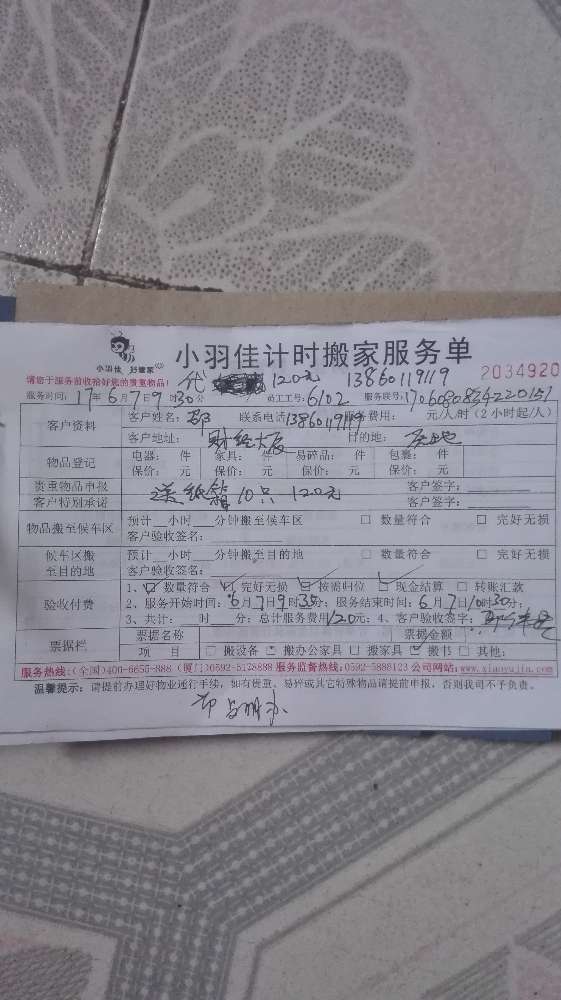 小羽佳 好搬家
小羽佳计时搬家服务单
2034920
请您于服务前收拾好您的贵重物品!
120元 13860119119
服务时间: 17年6月7日9时30分 员工工号: 6102 服务联号: 1706080834220151
客户资料
客户姓名: 联系电话13860119119 服务费用: 元/人/时 (2小时起/人)
客户地址: 财经大厦 目的地:
物品登记
电器: 件 家具: 件 易碎品: 件 包裹: 件
保价: 元 保价: 元 保价: 元 保价: 元
贵重物品申报 客户签字:
客户特别承诺 送纸箱10只 120元 客户签字:
物品搬至候车区
预计__小时__分钟搬至候车区 □ 数量符合 □ 完好无损
客户验收签名:
候车区搬至目的地
预计__小时__分钟搬至目的地 □ 数量符合 □ 完好无损
客户验收签名:
验收付费
1、☑ 数量符合 ☑ 完好无损 ☑ 按需归位 ☑ 现金结算 □ 转账汇款
2、服务开始时间: 6月7日9时35分; 服务结束时间: 6月7日10时30分;
3、共计: 时__分; 总计服务费用120元; 4、客户验收签字:
票据栏
票据名称 票据金额
项 目 □ 搬设备 □ 搬办公家具 □ 搬家具 ☑ 搬书 □ 其他:
服务热线:(全国)400-6655-888 (厦门)0592-5128888 服务监督热线:0592-5888123 公司网站:www.xiaoyujia.com
温馨提示: 请提前办理好物业通行手续, 如有贵重、易碎或其它特殊物品请提前申报, 否则我司不予负责。